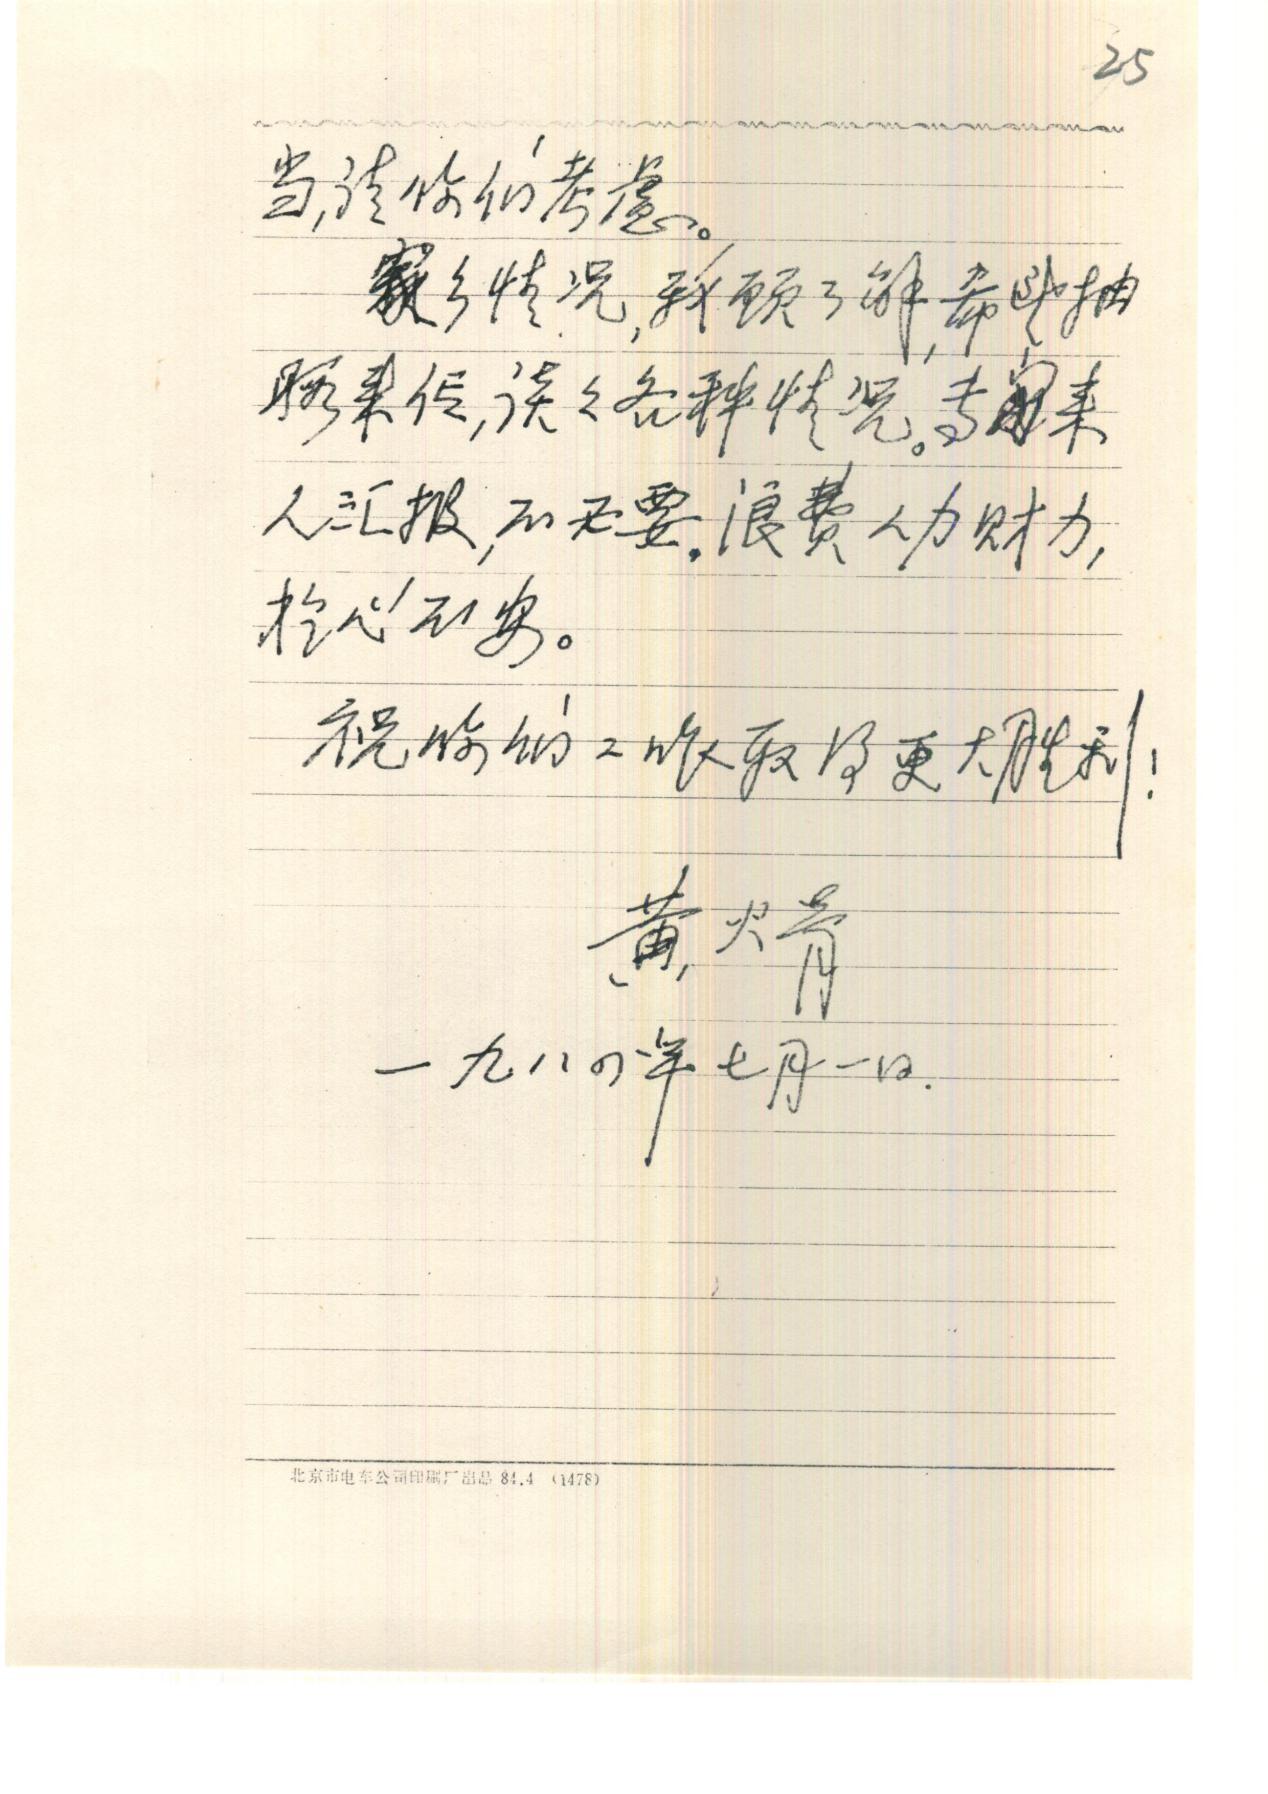 25
当,请你们考虑。
家乡情况,我愿了解,希望抽
暇来信,谈谈各种情况。专门来
人汇报,不必要。浪费人力财力,
于心不安。
祝你们工作取得更大胜利!
黄火青
一九八四年七月一日.
北京市电车公司印刷厂出品 84.4 (1478)